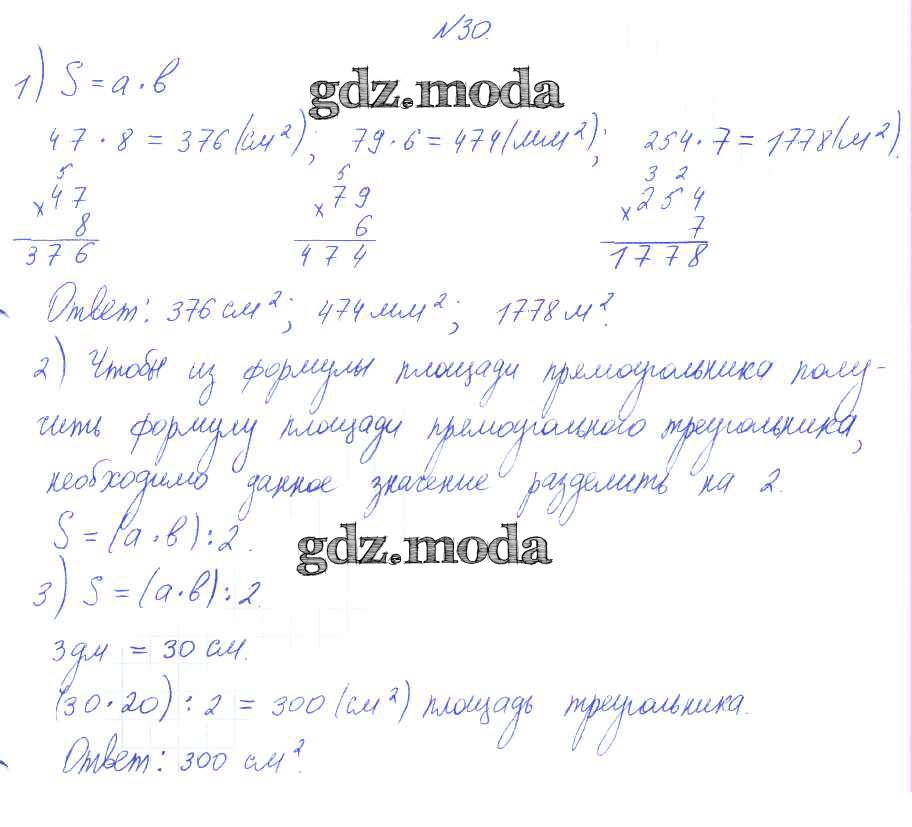 №30.
1) S = a · b
gdz.moda
47 · 8 = 376 (см²); 79 · 6 = 474 (мм²); 254 · 7 = 1778 (м²).
5 5 3 2
×47 ×79 ×254
8 6 7
376 474 1778
Ответ: 376 см²; 474 мм²; 1778 м².
2) Чтобы из формулы площади прямоугольника полу-
чить формулу площади прямоугольного треугольника,
необходимо данное значение разделить на 2.
S = (a · b) : 2.
gdz.moda
3) S = (a · b) : 2.
3 дм = 30 см.
(30 · 20) : 2 = 300 (см²) площадь треугольника.
Ответ: 300 см².